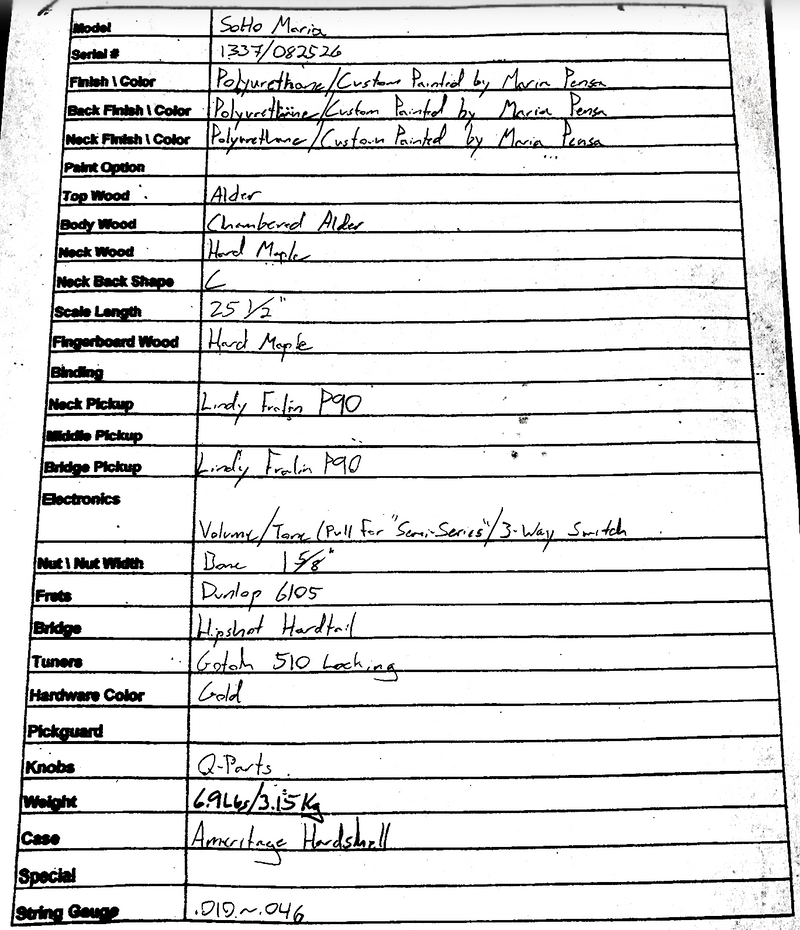 Model SoHo Maria
Serial # 1337/082526
Finish \ Color Polyurethane/Custom Painted by Maria Pensa
Back Finish \ Color Polyurethane/Custom Painted by Maria Pensa
Neck Finish \ Color Polyurethane/Custom Painted by Maria Pensa
Paint Option
Top Wood Alder
Body Wood Chambered Alder
Neck Wood Hard Maple
Neck Back Shape C
Scale Length 25 1/2"
Fingerboard Wood Hard Maple
Binding
Neck Pickup Lindy Fralin P90
Middle Pickup
Bridge Pickup Lindy Fralin P90
Electronics
Volume/Tone (Pull For "Semi-Series"/3-Way Switch
Nut \ Nut Width Bone 1 5/8"
Frets Dunlop 6105
Bridge Hipshot Hardtail
Tuners Gotoh 510 Locking
Hardware Color Gold
Pickguard
Knobs Q-Parts
Weight 6.9Lbs/3.15Kg
Case Ameritage Hardshell
Special
String Gauge .010~.046